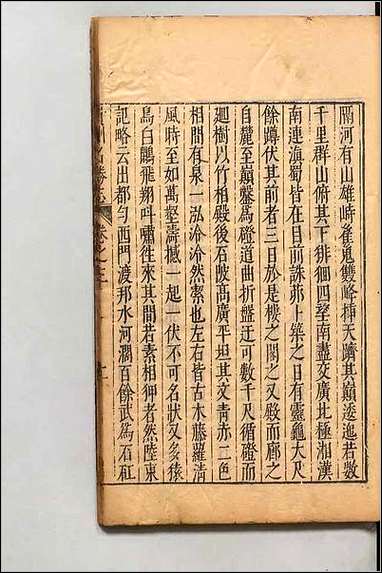 隔河有山雄峙崔嵬雙峰插天躋其巔逶迤若數
千里群山俯其下徘徊四望南盡交廣北極湘漢
南連滇蜀皆在目前誅茆上築之日有靈龜大尺
餘蹲伏其前者三日於是樓之閣之又殿而廊之
自麓至巔盤為磴道曲折盤迂可數千尺循磴而
廻樹以竹柏殿後石陂高廣平坦其文青赤二色
相間有泉一泓泠泠然潔也左右皆古木藤蘿清
風時至如萬壑濤撼一起一伏不可名狀又多猿
鳥白鷳飛翔呌嘯徃來其間若素相狎者然陸東
記略云出都勻西門渡邦水河濶百餘武為石矼
名勝志
卷之三